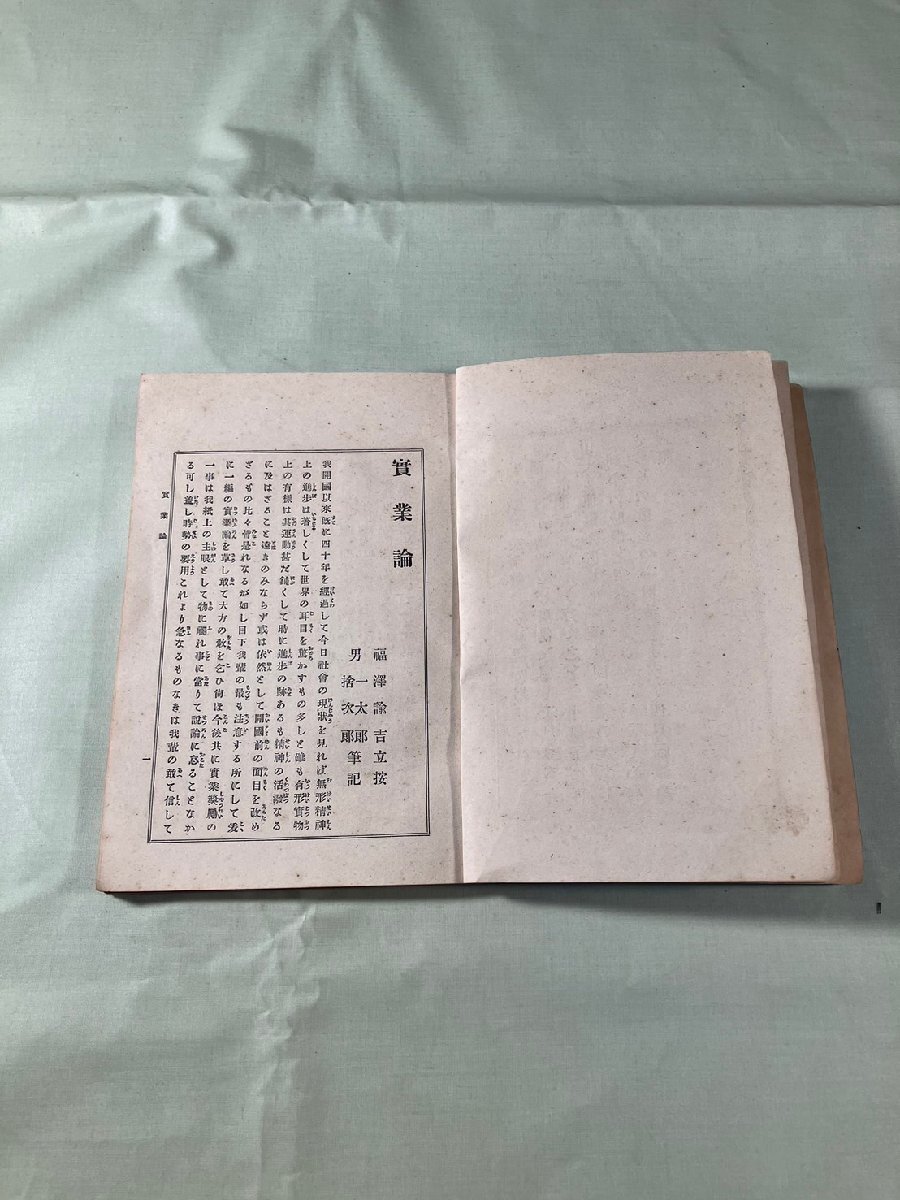 實業論
福澤諭吉立按
男 一太郎
捨次郎 筆記
我開國以來既に四十年を經過して今日社會の現狀を見れば無形精神
上の進歩は著しくして世界の耳目を驚かすもの多しと雖も有形實物
上の有樣は其運動甚だ鈍くして時に進歩の跡あるも精神の活潑なる
に及ばざること遠きのみならず或は依然として開國前の面目を改め
ざるもの比々皆是れなるが如し目下我輩の最も注意する所にして爰
に一編の實業論を草し敢て大方の敎を乞ひ尙ほ今後共に實業發達の
一事は我紙上の主眼として物に觸れ事に當りて說論に怠ることなか
る可し蓋し時勢の要用これより急なるものなきは我輩の敢て信して
實業論
一